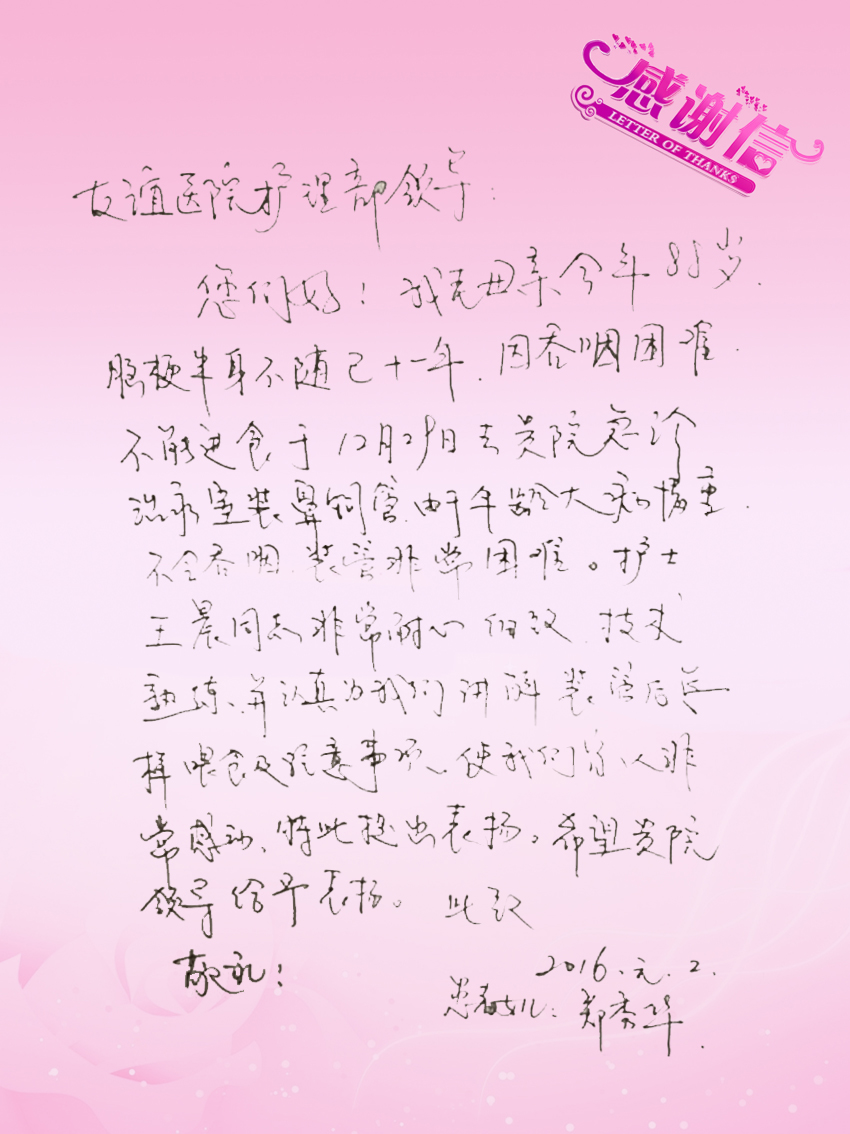 感谢信
LETTER OF THANKS
友谊医院护理部领导:
您们好!我老母亲今年88岁.
脑梗半身不随已十一年.因吞咽困难.
不能进食于12月29日去贵院急诊
治疗室装鼻饲管.由于年龄大病情重.
不会吞咽.装管非常困难。护士
王晨同志非常耐心细致.技术
熟练、并认真为我们讲解装管后怎
样喂食及注意事项、使我们家人非
常感动、特此提出表扬。希望贵院
领导给予表扬。 此致
敬礼!
2016.元.2.
患者女儿:郑秀华.